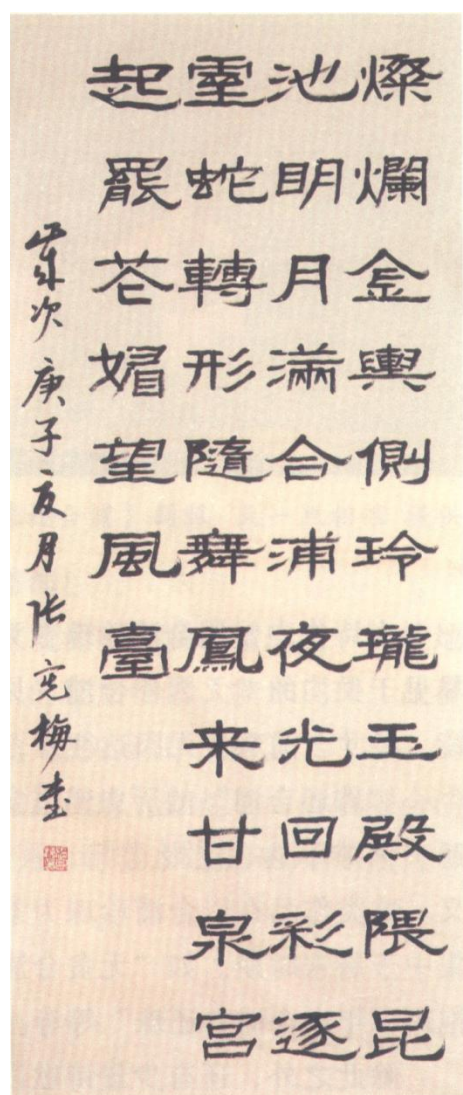 燦爛金輿側玲瓏玉殿隈昆
池明月滿合浦夜光回彩逐
霊蛇轉形隨舞鳳来甘泉宮
起罷花媚望風臺
歲次庚子夏月张克梅書